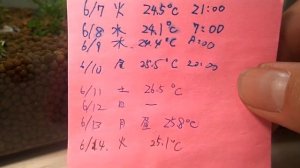 6/7 火 24.5℃ 21:00
6/8 水 24.1℃ 7:00
6/9 木 24.4℃
6/10 25.5℃
6/11 土 26.5℃
6/12 日 ー
6/13 月 昼 25.8℃
6/14. 火 25.1℃